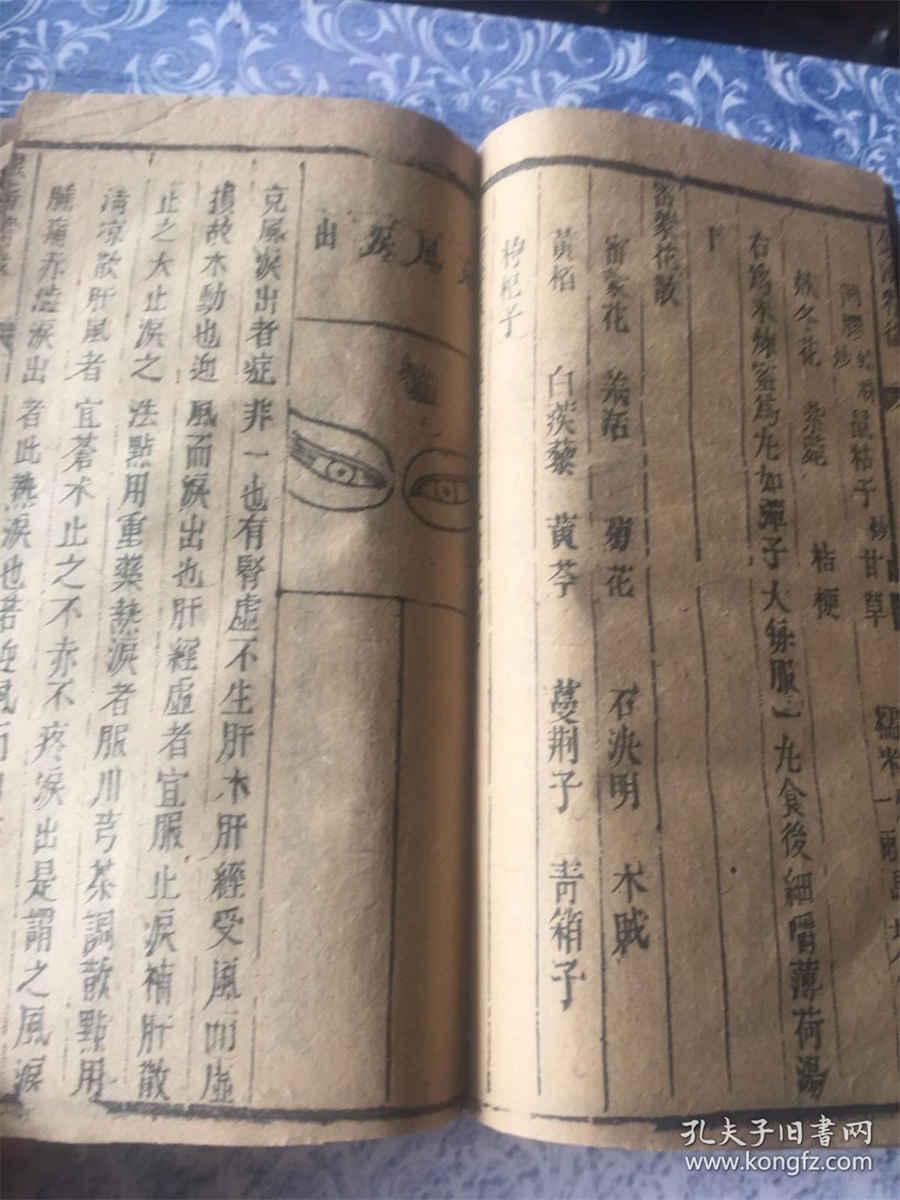 阿膠炒 鼠粘子炒 甘草 糯米一兩
欵冬花 紫菀 桔梗
右爲末煉蜜爲丸如彈子大每服一丸食後細嚼薄荷湯
下
密蒙花散
密蒙花 羌活 菊花 石决明 木賊
黃栢 白蒺藜 黃芩 蔓荆子 青箱子
枸杞子
風淚出
充風淚出者症非一也有腎虛不生肝木肝經受風而虛
損故木動也迎風而淚出也肝經虛者宜服止淚補肝散
止之大止淚之法點用重藥熱淚者服川芎茶調散點用
清凉散肝風者宜蒼术止之不赤不疼淚出是謂之風淚
腫痛赤澁淚出者此熱淚也若迎風而
孔夫子旧书网
www.kongfz.com